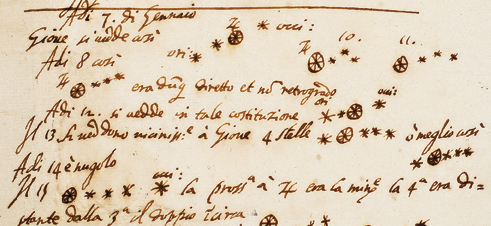 Adi 7. di Gennaio
Gione si vedde così ♃ occi:
Adi 8 così ori: ♃ 10. 11.
♃ era dũq diretto et nõ retrogrado
Adi 12. si vedde in tale costitutione ori occi:
Il 13 si veddono vicinissᵉ à Gione 4 stelle ò meglio così
Adi 14 è nugolo
Il 15 occi: la prossᵃ à ♃ era la minᵉ la 4ᵃ era di-
stante dalla 3ᵃ il doppio ĩcirca